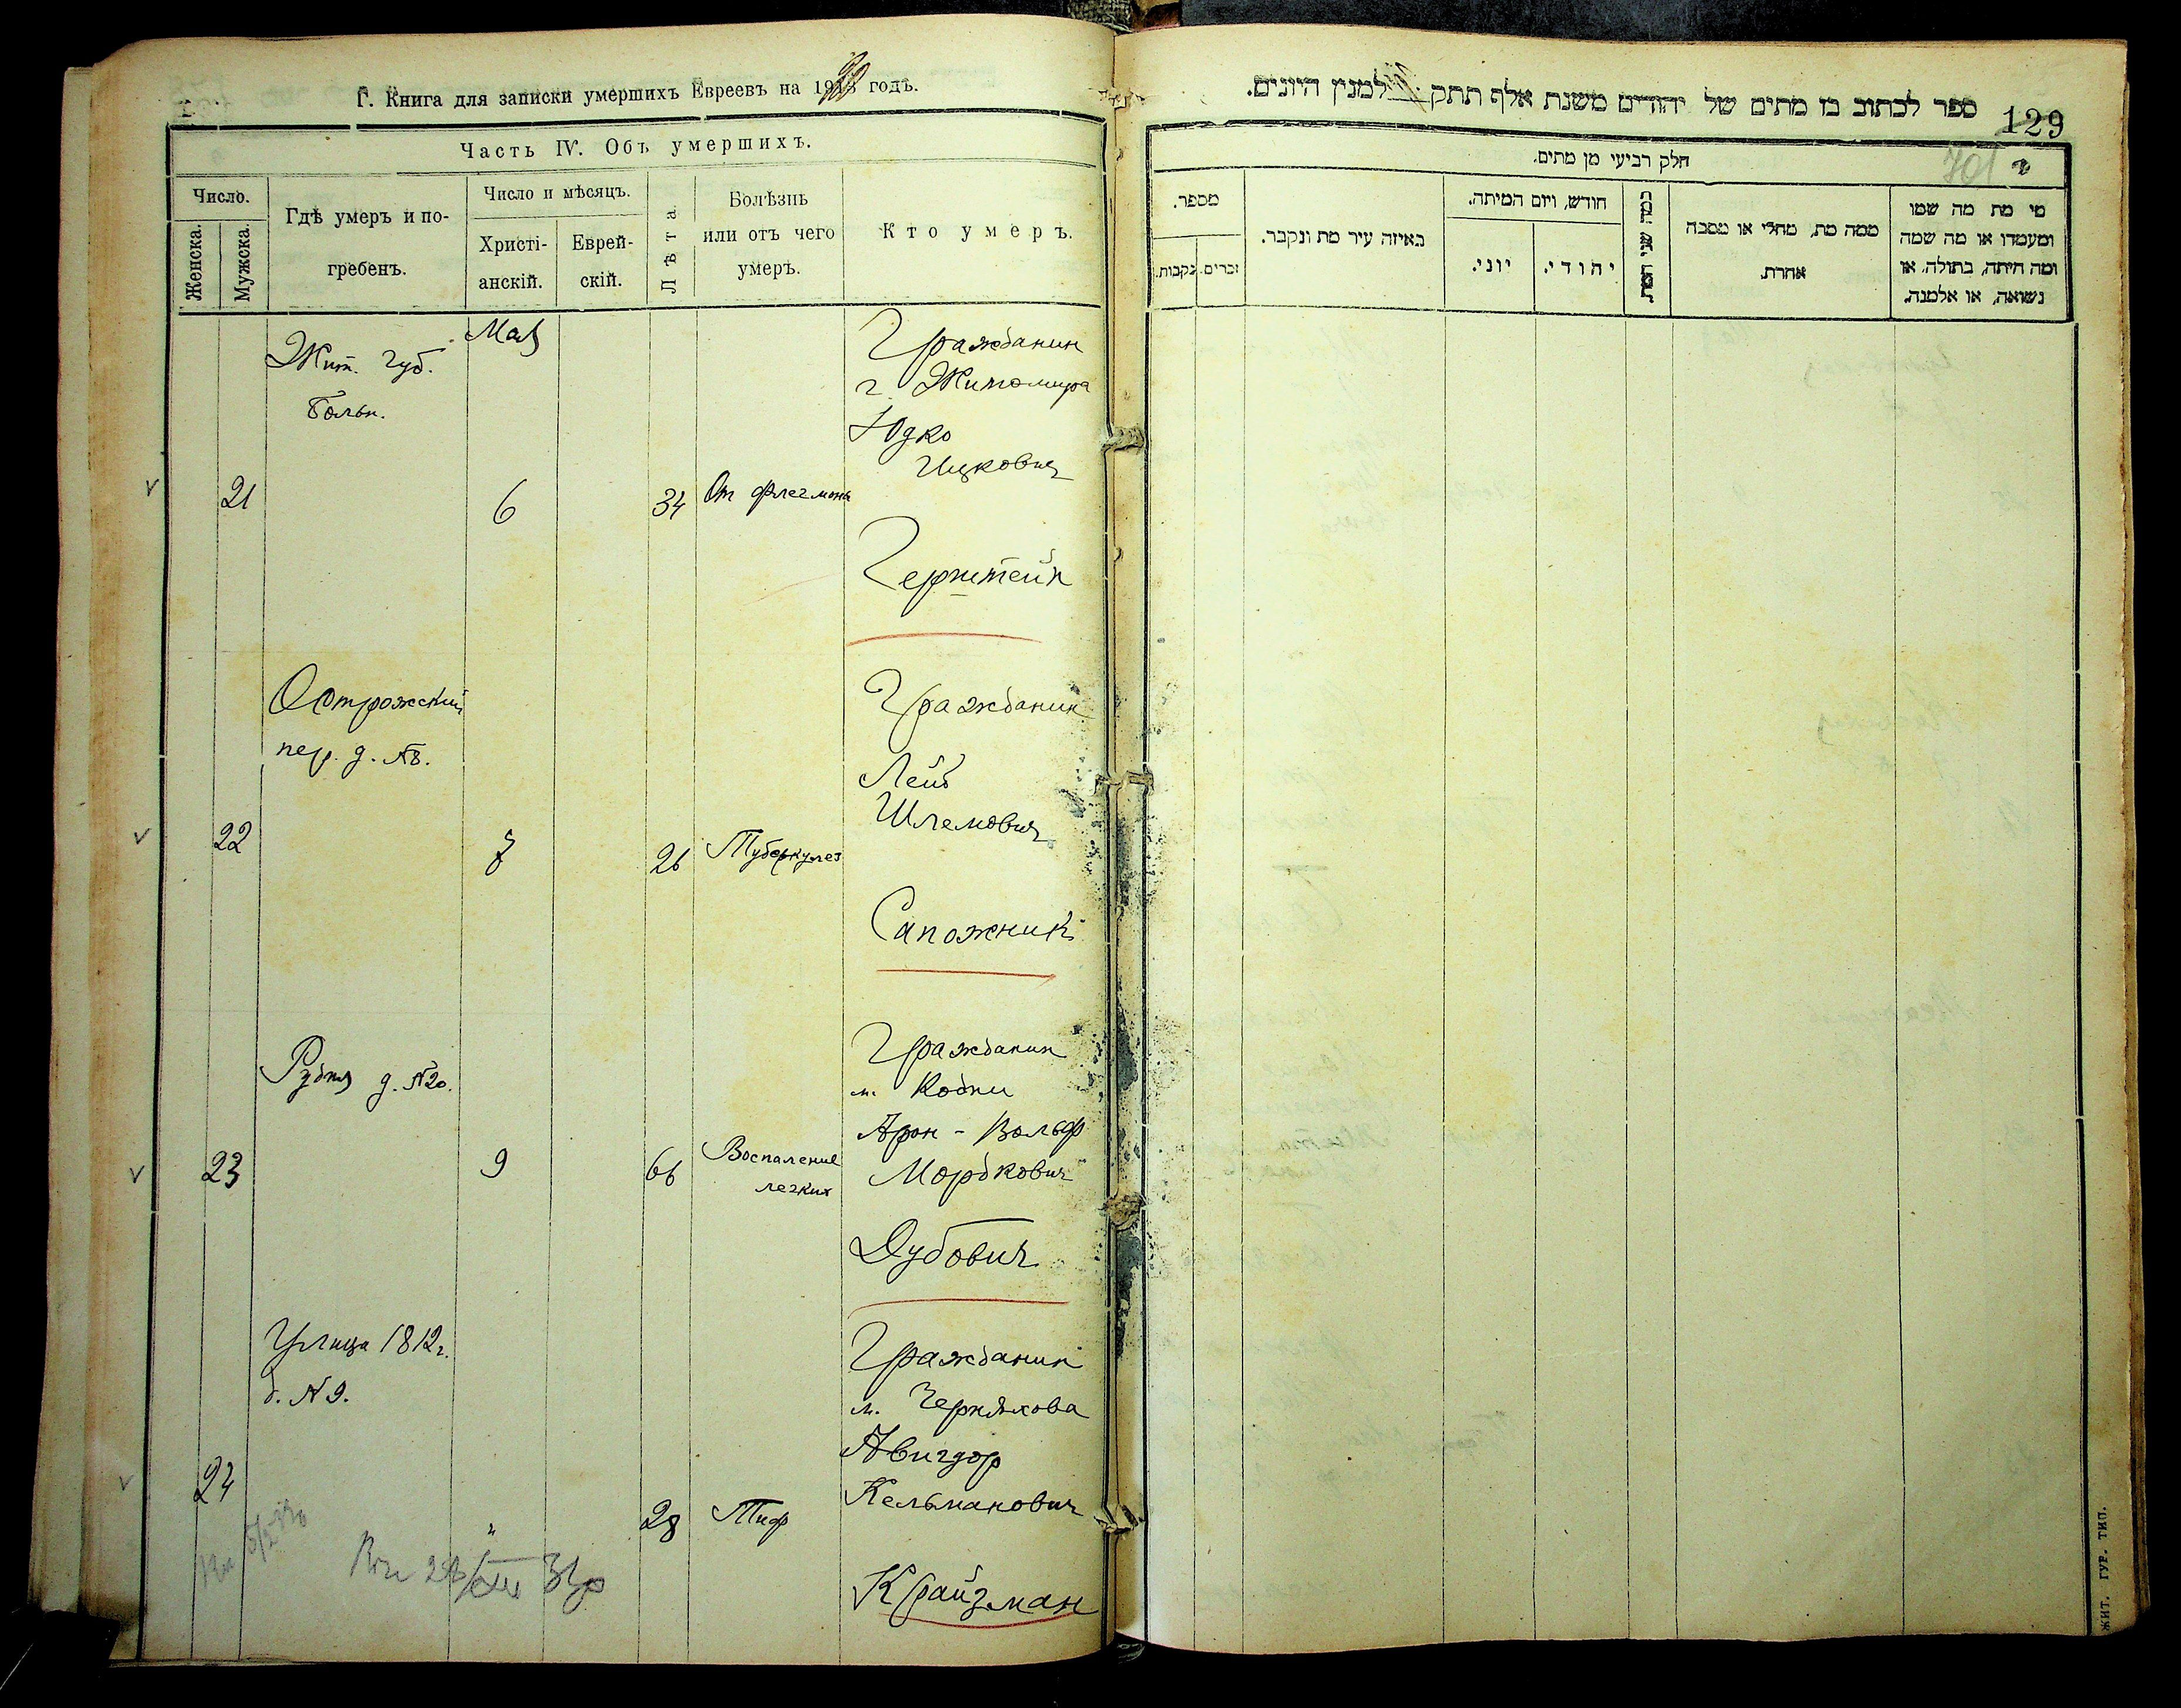 Г. Книга для записки умершихъ Евреевъ на 19 годъ.
Часть IV. Объ умершихъ.
Число.
Женска.
Мужска.
Гдѣ умеръ и по-
гребенъ.
Число и мѣсяцъ.
Христі-
анскій.
Еврей-
скій.
Лѣта.
Болѣзнь
или отъ чего
умеръ.
Кто умеръ.
Жит. губ.
Больн.
Мая
21
6
34
От флегмоны
Гражданин
г. Житомира
Юдко
Ицкович
Герштейн
Острожский
пер. д. №8.
22
26
Туберкулез
Гражданин
Лейб
Шлемович
Сапожник
Рудня д. №20.
23
9
66
Воспаление
легких
Гражданин
м. Кодни
Арон - Вольф
Мордкович
Дубович
Улица 1812 г.
д. №9.
24
"
28
Тиф
Гражданин
м. Черняхова
Авигдор
Кельманович
Крайзман
ספר לכתוב בו מתים של יהודים משנת אלף תתק למנין היונים.
129
701
חלק רביעי מן מתים.
מספר.
נקבות.
זכרים.
באיזה עיר מת ונקבר.
חודש, ויום המיתה.
יוני.
יהודי.
כמה שני המת
ממה מת, מחלי או מסבה
אחרת.
מי מת מה שמו
ומעמדו או מה שמה
ומה היתה, בתולה, או
נשואה, או אלמנה.
ЖИТ. ГУБ. ТИП.